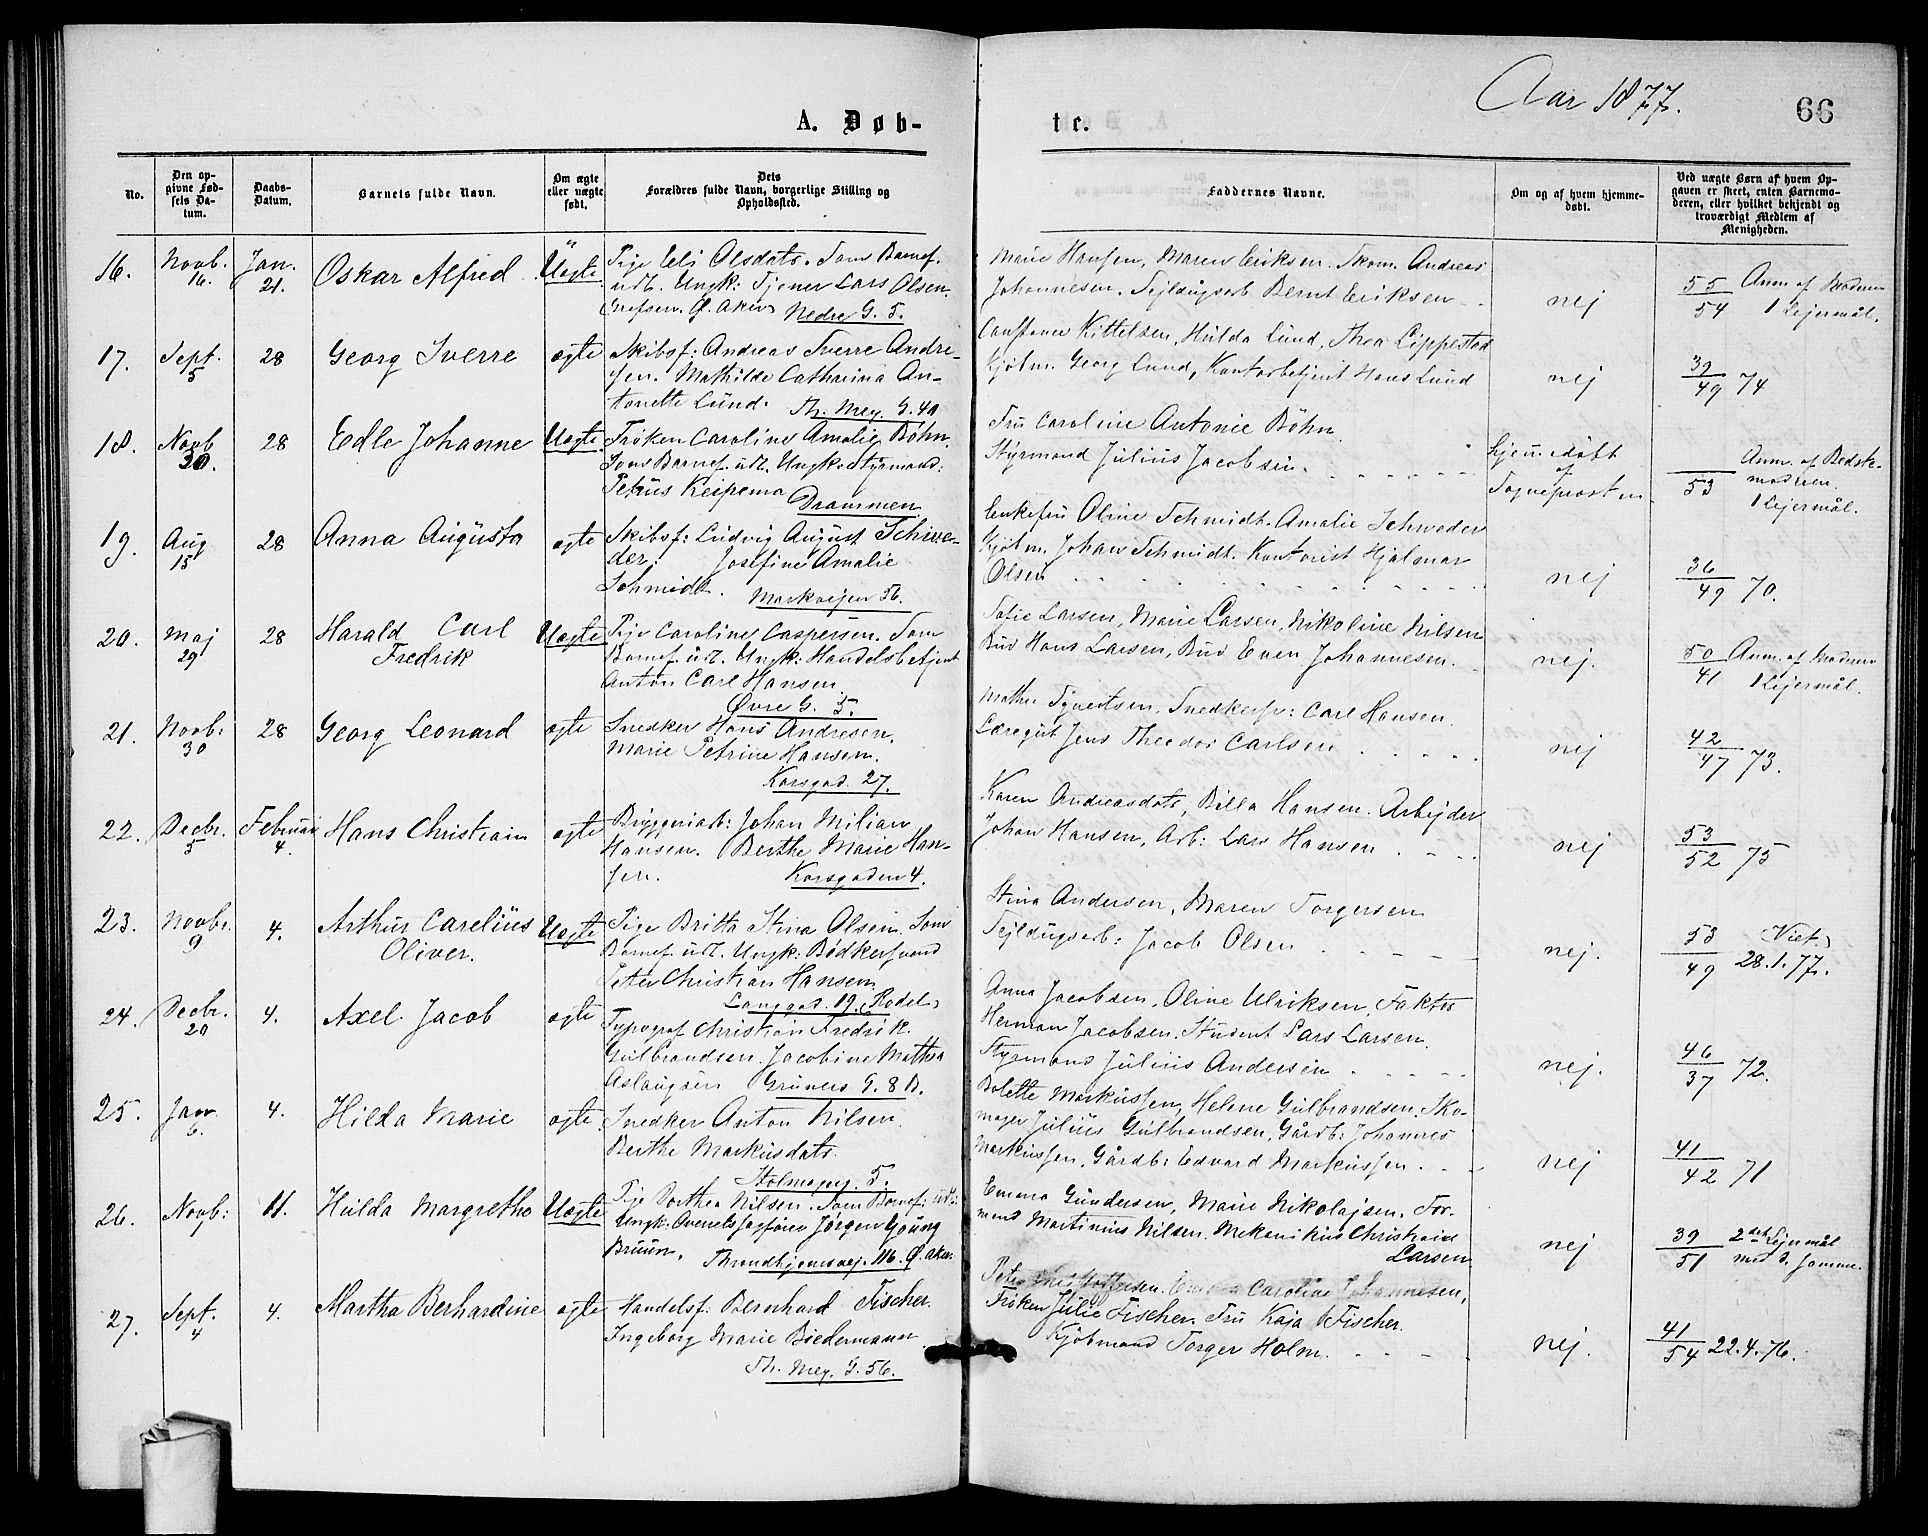 Aar 1877.
66
A. Døb-
te.
No.
Den op-
givne Fød-
sels Da-
tum.
Daabs-
Datum.
Barnets fulde Navn.
Om ægte
eller uægte
født.
Dets
Forældres fulde Navn, borgerlige Stilling og
Opholdssted.
Faddernes Navne.
Om og af hvem hjemme-
døbt.
Ved uægte Børn af hvem Op-
gaven er skeet, enten Barnemo-
deren, eller hvilket bekjendt og
troværdigt Medlem af
Menigheden.
16. Novb. 16. Jan. 21. Oskar Alfred Uægte
Pige Eli Olsdatr. Som Barnef.
udl. Ungk: Tjener Lars Olsen
Grefsen. Ø. Aker Nedre G. 5.
Marie Hansen, Maren Eriksen. Skom. Andreas
Johannesen. Sejldugsarb Bernt Eriksen
nej
55/54 Anm. af Moderen
1 Lejermål.
17. Sept. 5 28 Georg Sverre ægte
Skibsf: Andreas Sverre Andre-
sen. Mathilde Catharina An-
tonette Lund. Th. Mey. G. 40
Constance Kittelsen, Hulda Lund, Thea Lippestad
Kjøbm. Georg Lund, Kontorbetjent Hans Lund
nej
39/49 74
18. Novb 30. 28 Edle Johanne Uægte
Frøken Caroline Amalie Bøhn.
Som Barnef. udl. Ungk: Styrmand:
Petrus Keipema Drammen
Fru Caroline Antonie Bøhn
Styrmand Julius Jacobsen.
Hjemmedøbt
af
Sogneprosten
53 Anm. af Bedste-
moderen.
1 Lejermål.
19. Aug 15 28 Anna Augusta ægte
Skibsf: Ludvig August Schwe-
der. Josefine Amalie
Schmidt. Markveien 56.
Enkefru Oline Schmidt. Amalie Schweder
Kjøbm. Johan Schmidt. Kontorist Hjalmar
Olsen
nej
36/49 70.
20. Maj 29 28 Harald Carl
Fredrik Uægte
Pige Caroline Caspersen. Som
Barnef. udl. Ungk: Handelsbetjent
Anton Carl Hansen.
Øvre G. 5.
Sofie Larsen, Marie Larsen, Nikoline Nilsen
Bud Hans Larsen, Bud Even Johannesen.
nej.
50/41 Anm. af Moderen
1 Lejermål.
21. Novb: 30 28 Georg Leonard ægte
Snedker Hans Andresen.
Marie Petrine Hansen.
Korsgad. 27.
Mathea Syvertsen, Snedkersv: Carl Hansen.
Læregut Jens Theodor Carlsen
nej
42/47 73.
22. Decbr. 5 Februar 4. Hans Christian ægte
Bryggeriarb: Johan Milian
Hansen. Berthe Marie Han-
sen. Korsgaden 4.
Karen Andreasdatr, Billa Hansen. Arbejder
Johan Hansen, Arb: Lars Hansen
nej
53/52 75
23. Novbr. 9 4. Arthur Carelius
Oliver. Uægte
Pige Britta Stina Olsen. Som
Barnef. udl. Ungk: Bødkersvend
Peter Christian Hansen.
Langgad. 19. (Rodel.)
Stina Andersen, Maren Torgersen
Sejldugsarb: Jacob Olsen
nej.
53/49 (Viet.)
28.1.77.
24. Decbr. 20 4. Axel Jacob ægte
Typograf Christian Fredrik
Gulbrandsen. Jacobine Mathea
Aslaugsen Grüners G. 8 B.
Anna Jacobsen, Oline Ulriksen, Faktor
Herman Jacobsen. Student Lars Larsen.
Styrmand Julius Andersen
nej.
46/37 72.
25. Jan. 6. 4. Hilda Marie ægte
Snedker Anton Nilsen.
Berthe Markusdatr.
Holmagig. 5.
Bolette Markussen, Helene Gulbrandsen. Sko-
mager Julius Gulbrandsen, Gårdb: Johannes
Markussen, Gårdb: Edvard Markussen
nej
41/42 71
26. Novb: 11. Hulda Margrethe Uægte
Pige Dorthea Nilsen. Som Barnef: udl:
Ungk: Jørgen Young
Bruun. Throndhjemsvej. 116. Ø. Aker.
Emma Gundersen, Marie Nikolajsen. For-
mend Martinius Nilsen. Mekanikus Christian
Larsen
nej
39/51 2det Lejermål
med d. samme.
27. Sept. 4 4. Martha Berhardine ægte
Handelsf: Bernhard Fischer.
Ingeborg Marie Biedermann
Th. Mey. G. 56.
Caroline Johannesen,
Frøken Julie Fischer. Fru Kaja Fischer.
Kjøbmand Torger Holm.
nej.
41/54 22.4.76.